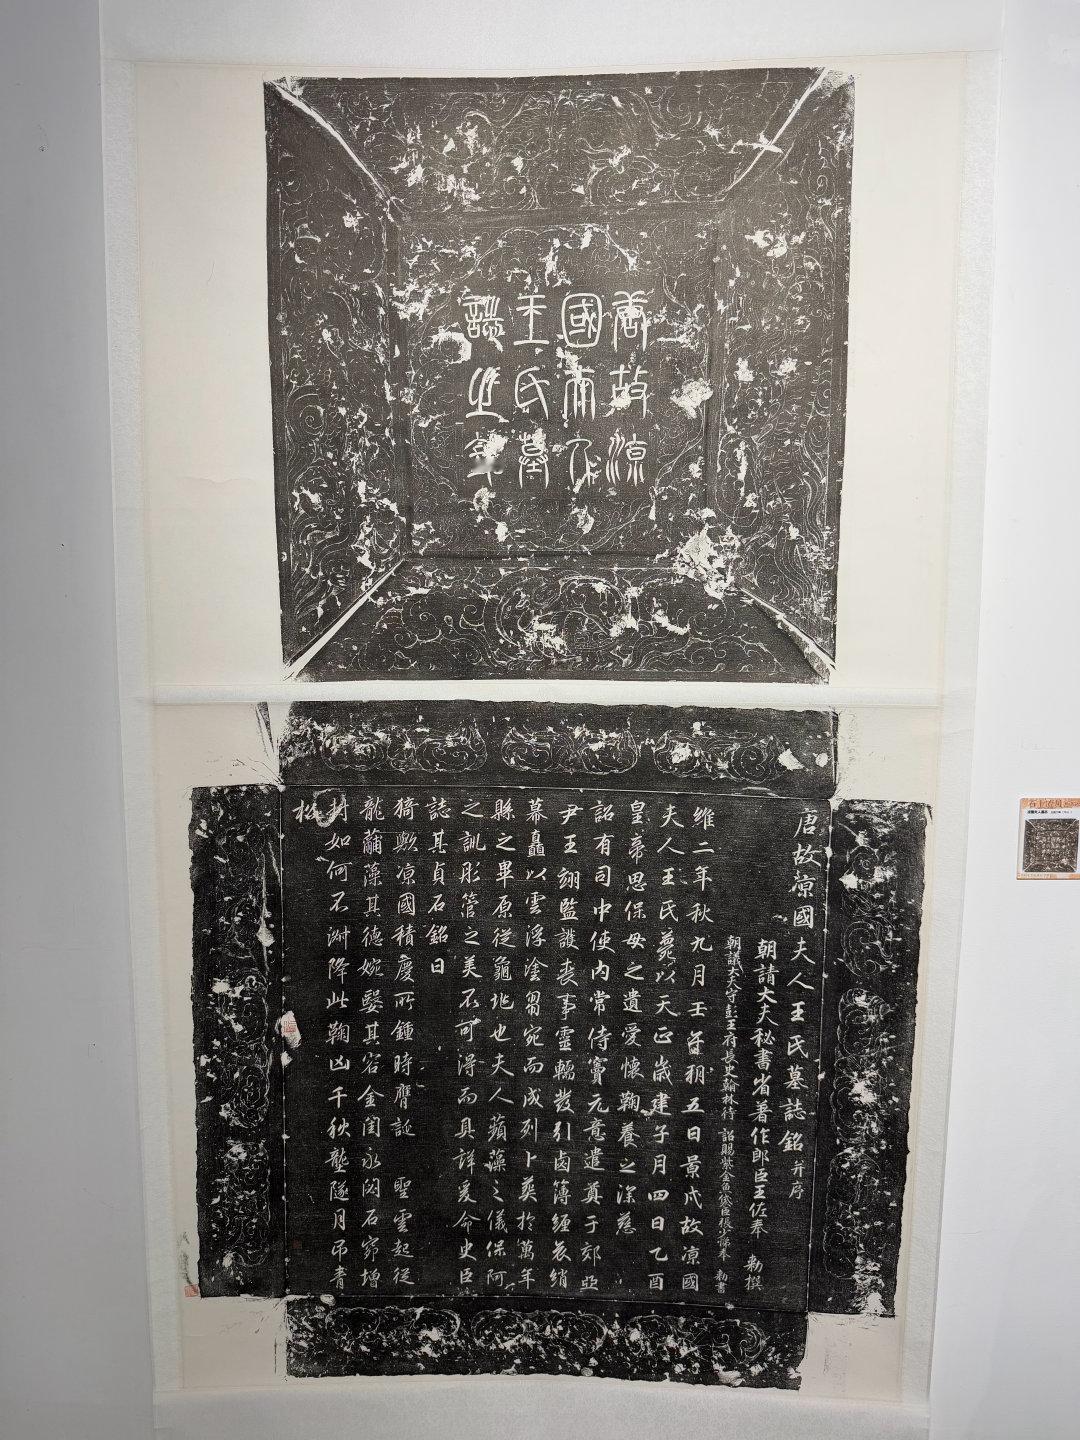 唐故涼
國夫人
王氏墓
誌之銘
唐故涼國夫人王氏墓誌銘并序
朝請大夫秘書省著作郎臣王佐奉 勅撰
朝議大夫守彭王府長史翰林待 詔賜紫金魚袋臣張少悌奉 勅書
維二年秋九月壬午朔五日景戌故涼國
夫人王氏薨以天正歲建子月四日乙酉
皇帝思保母之遺愛懷鞠養之深慈
詔有司中使內常侍竇元意遣奠于郊亞
尹王翊監護喪事靈轜發引鹵簿纏哀綃
幕矗以雲浮塗芻宛而成列卜葬於萬年
縣之畢原從龜兆也夫人蘋藻之儀保阿
之訓彤管之美不可得而具詳爰命史臣
誌其貞石銘曰
猗歟涼國積慶所鍾時膺誕 聖雲起從
龍黼藻其德婉嫕其容金閨永閟石窌增
封如何不淑降此鞠凶千秋壟隧月帀青
松